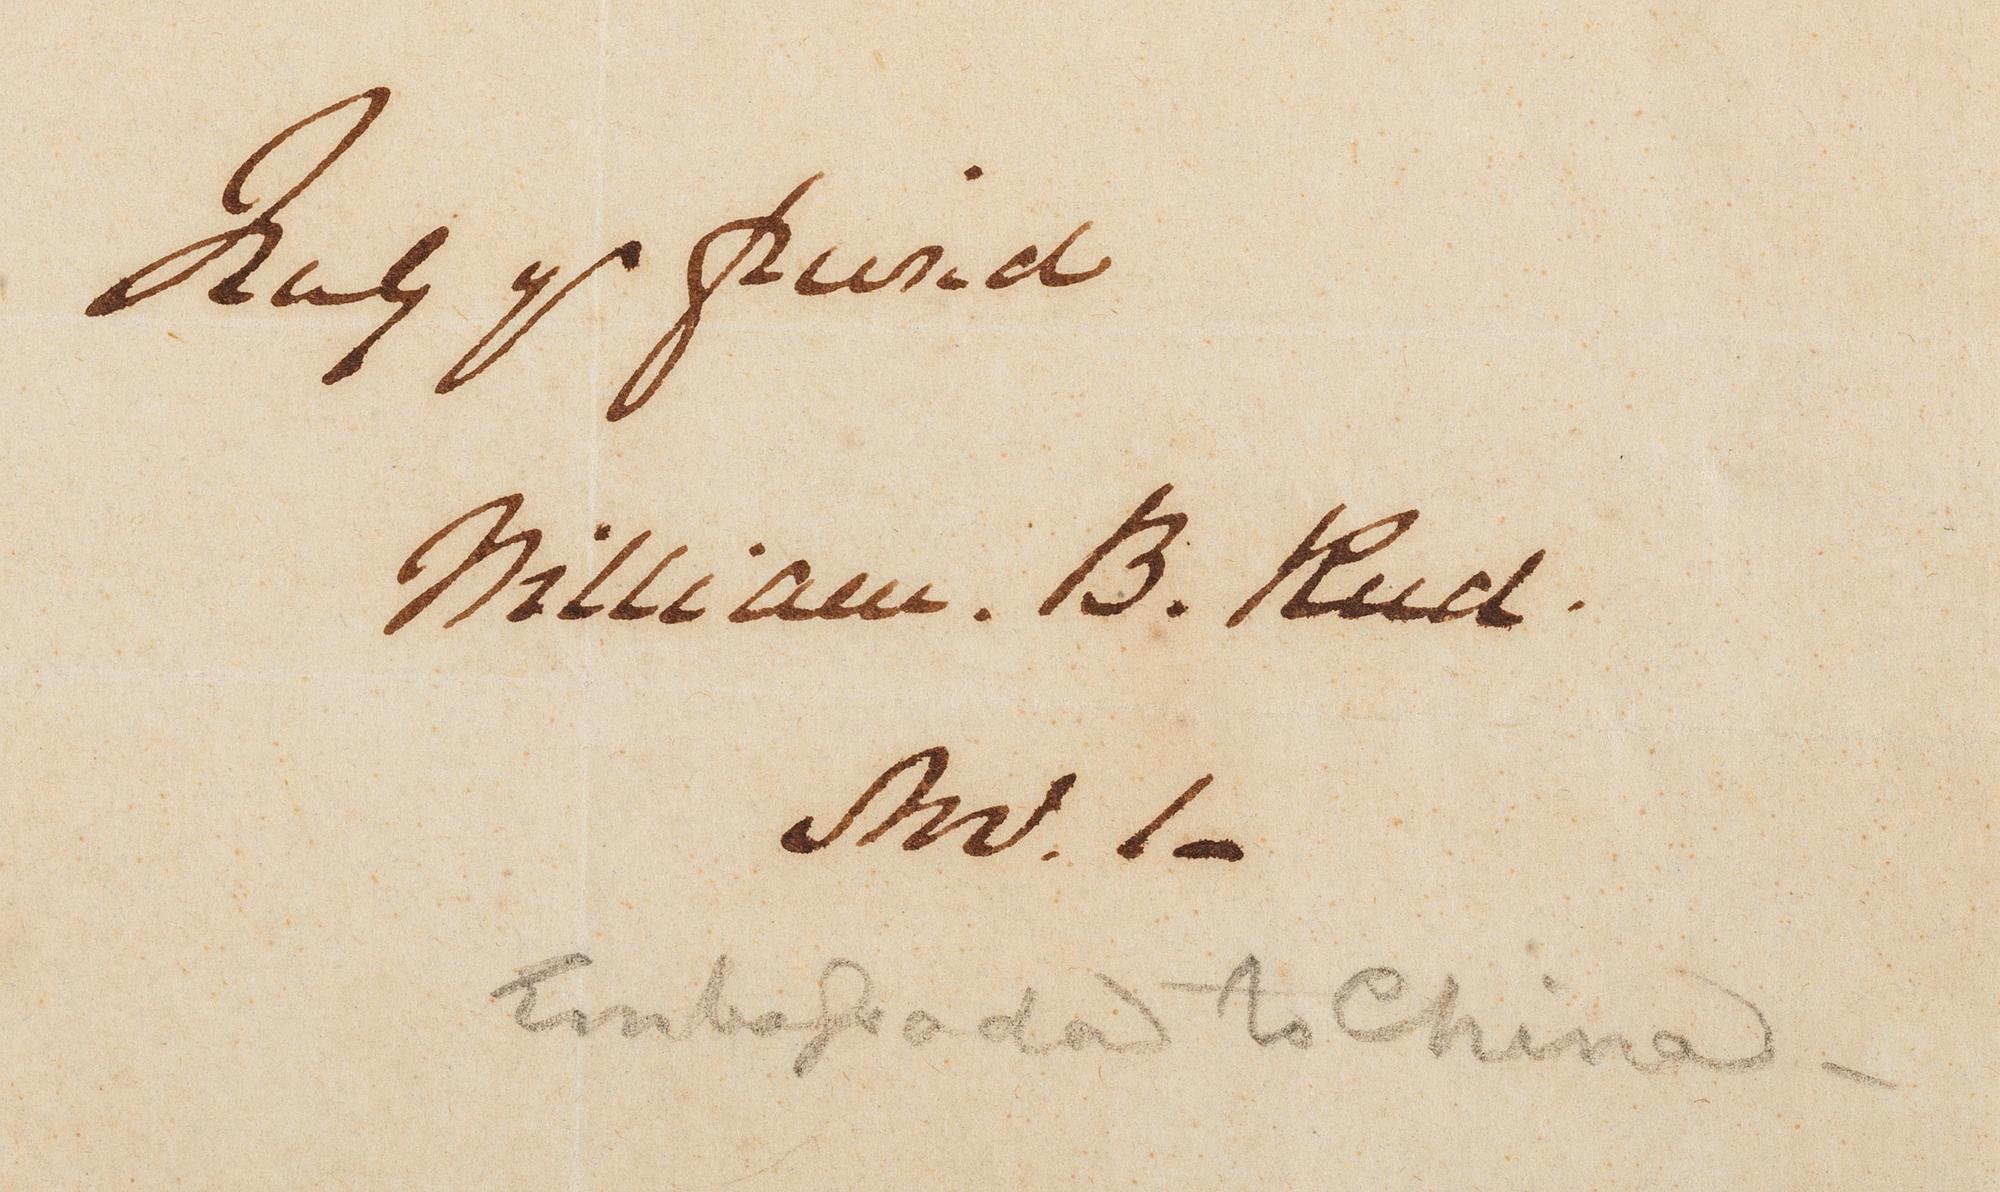 Truly yr friend
William. B. Reed.
Nov. 1–
Embassador to China –